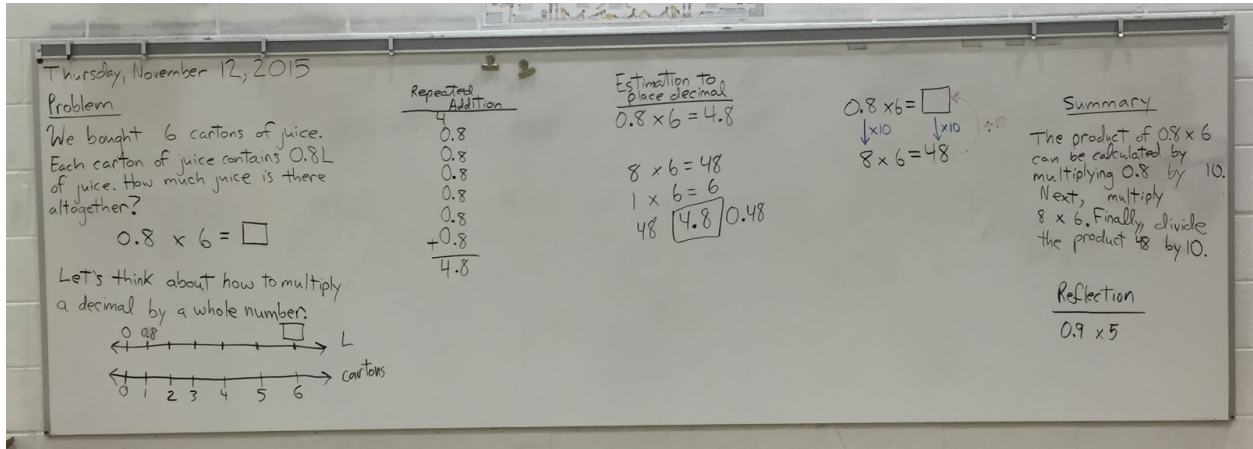 Thursday, November 12, 2015
Problem
We bought 6 cartons of juice.
Each carton of juice contains 0.8L
of juice. How much juice is there
altogether?
0.8 x 6 = □
Let's think about how to multiply
a decimal by a whole number.
0 0.8 □
L
cartons
0 1 2 3 4 5 6
Repeated
Addition
4
0.8
0.8
0.8
0.8
0.8
+0.8
4.8
Estimation to
place decimal
0.8 x 6 = 4.8
8 x 6 = 48
1 x 6 = 6
48 4.8 0.48
0.8 x 6 = □
x10 x10 ÷10
8 x 6 = 48
Summary
The product of 0.8 x 6
can be calculated by
multiplying 0.8 by 10.
Next, multiply
8 x 6. Finally, divide
the product 48 by 10.
Reflection
0.9 x 5